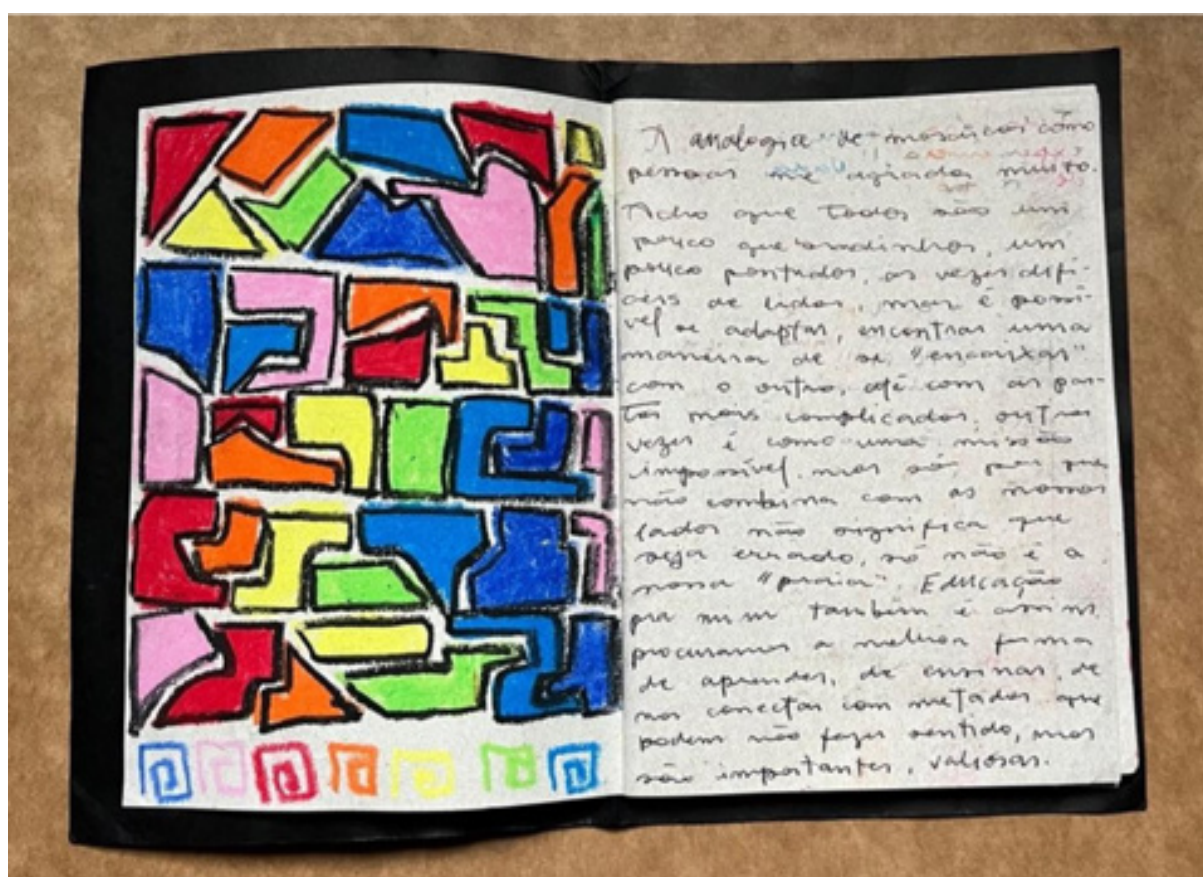 A analogia de mosaicos como
pessoas me agrada muito.
Acho que todos são um
pouco quebradinhos, um
pouco pontudos, as vezes difí-
ceis de lidar, mas é possí-
vel se adaptar, encontrar uma
maneira de se "encaixar"
com o outro, até com as par-
tes mais complicadas, outras
vezes é como uma missão
impossível, mas só por que
não combina com as nossos
lados não significa que
seja errado, só não é a
nossa "praia". Educação
pra mim também é assim,
procuramos a melhor forma
de aprender, de ensinar, de
nos conectar com metades que
podem não fazer sentido, mas
são importantes, valiosas.